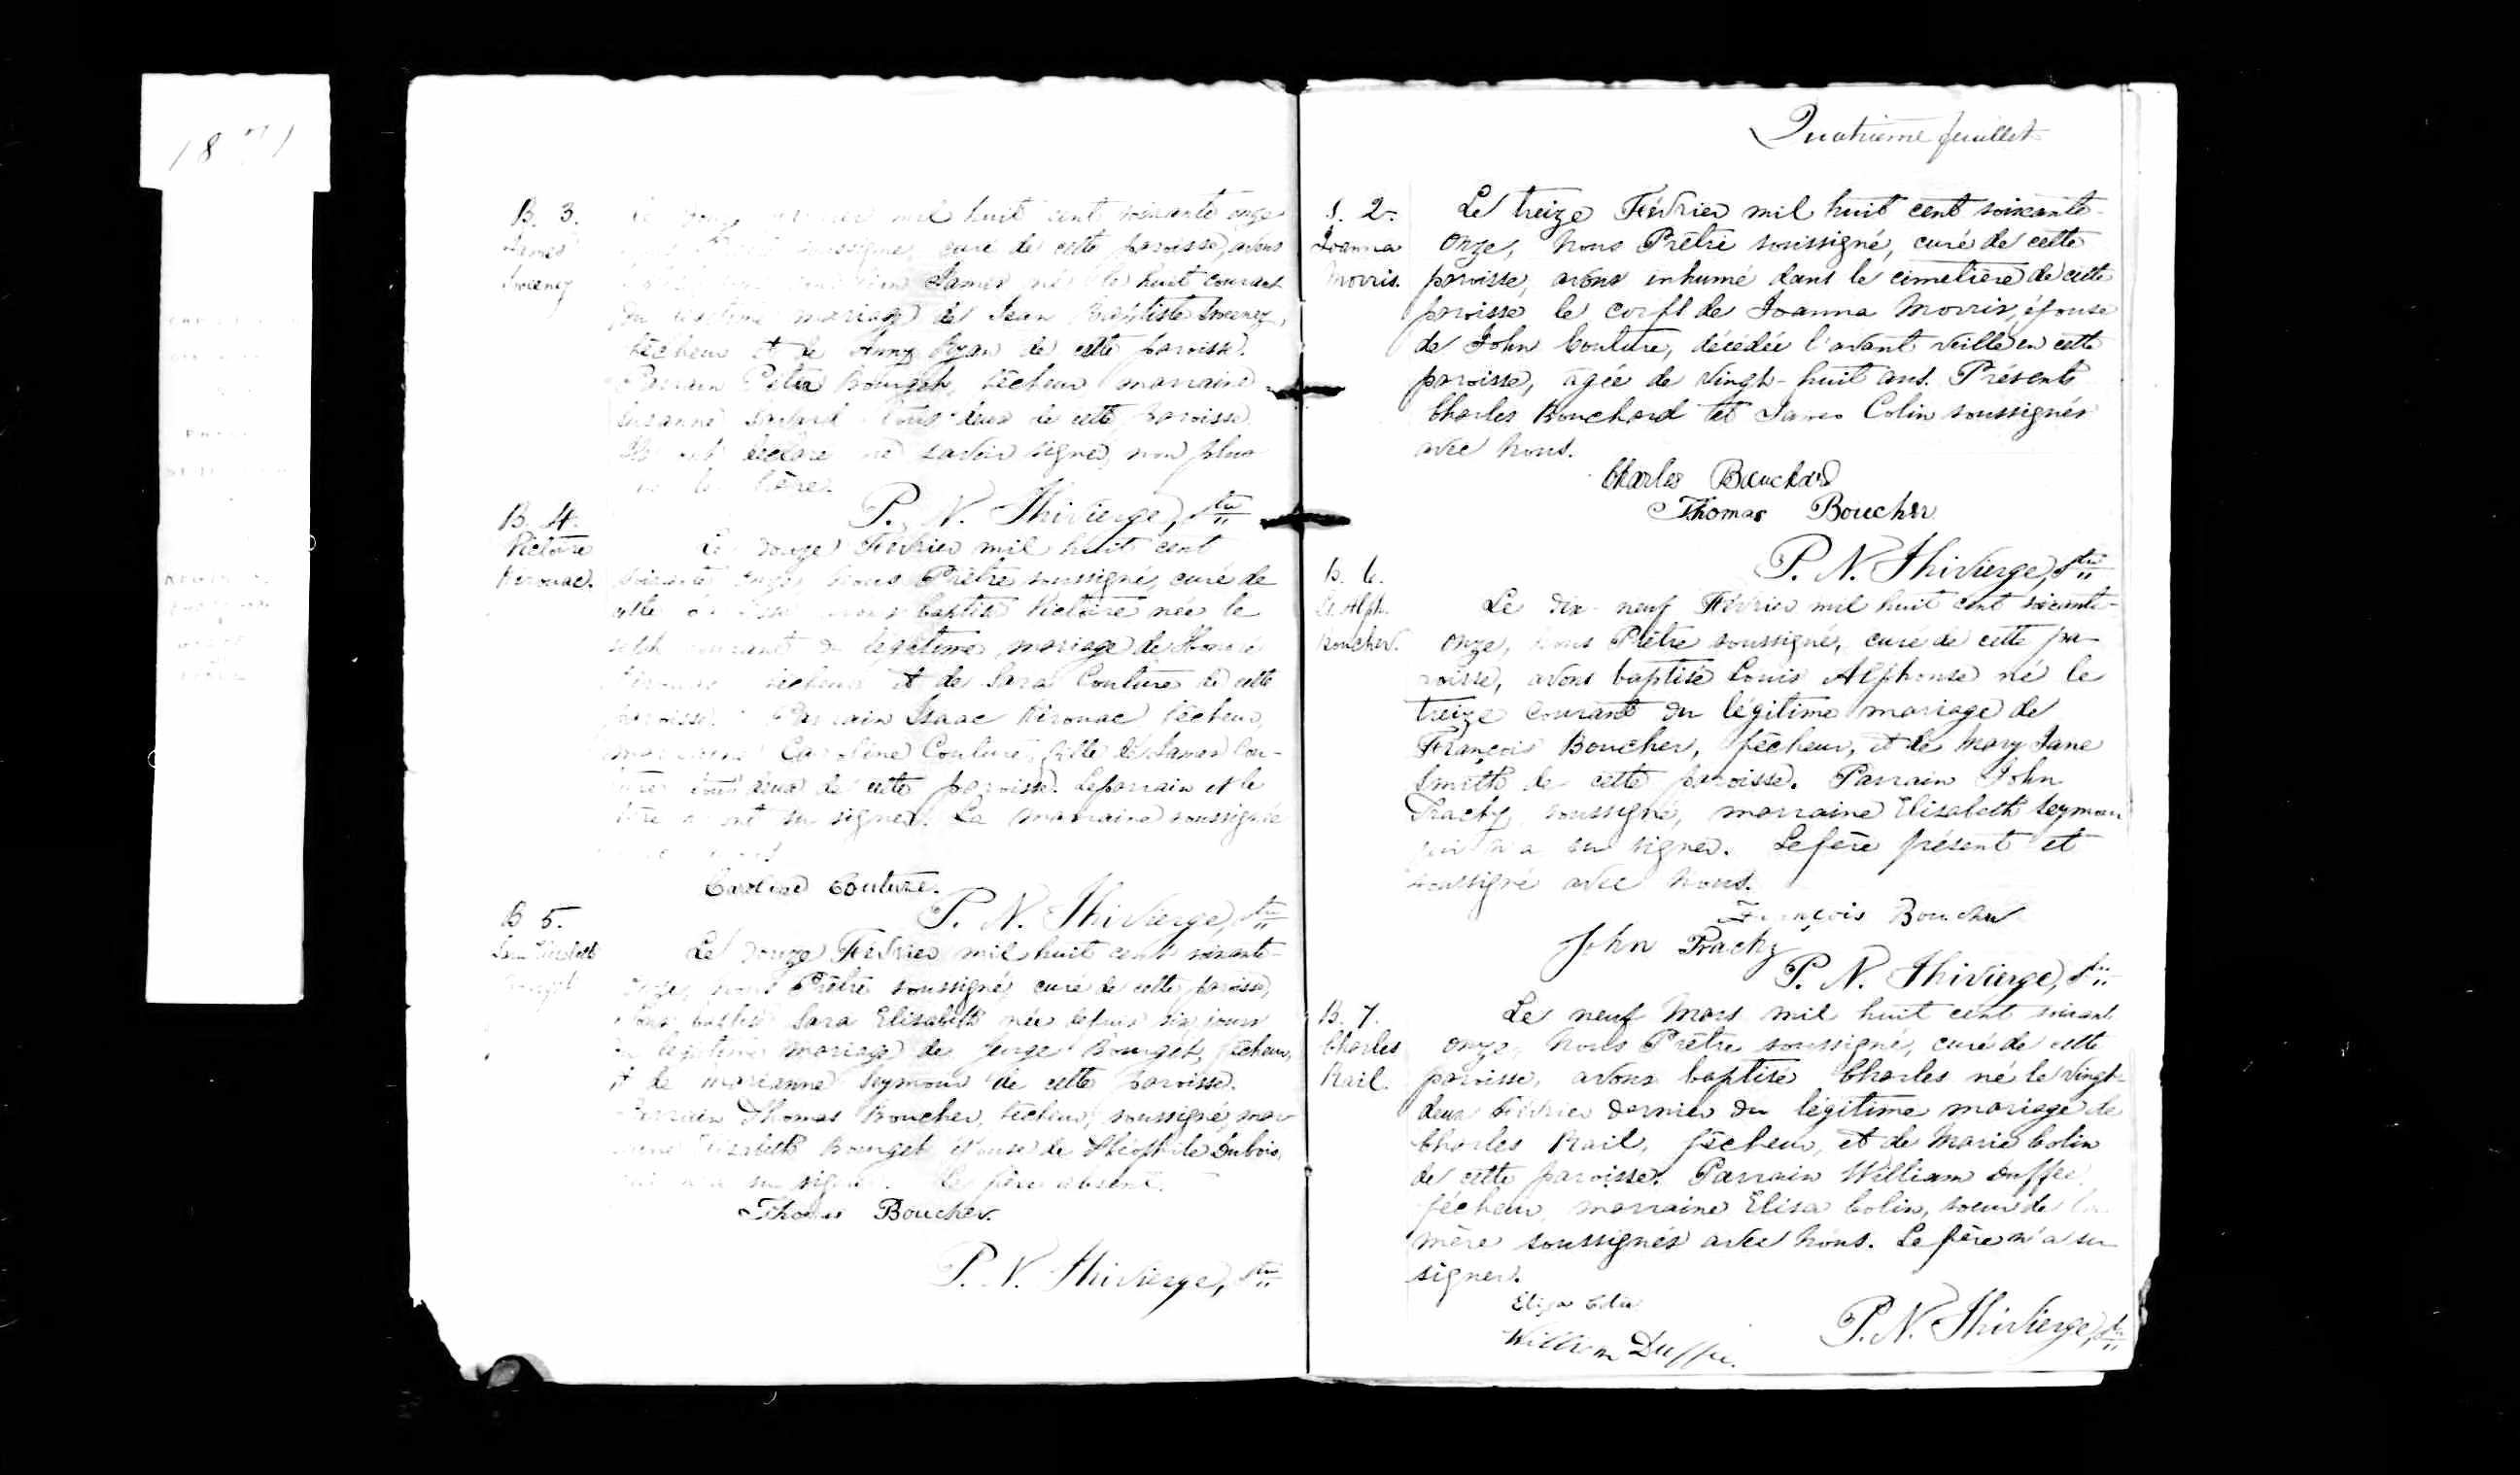 1871
B. 3.
James
Sweeney
mil huit cent soixante onze
soussigné, curé de cette paroisse, avons
James né le huit courant
du légitime mariage de Jean Baptiste Sweeney,
pêcheur et de Anny Ryan de cette paroisse.
Parrain Peter Bourget, pêcheur marraine
Susanne tous deux de cette paroisse
déclaré ne savoir signer, non plus
le père.
P. N. Thivierge, Ptre
B. 4.
Victoire
Kirouac.
Le douze Février mil huit cent
soixante onze nous Prêtre soussigné, curé de
cette baptisé Victoire née le
sept courant du légitime mariage de Honoré
pêcheur et de Sara Couture de cette
paroisse. Parrain Isaac Kirouac pêcheur,
marraine Caroline Couture, fille de James Cou-
ture tous deux de cette paroisse. Le parrain et le
père n'ont su signer. La marraine soussignée
Caroline Couture.
P. N. Thivierge, Ptre
B 5.
Sara Elisabeth
Bourget
Le douze Février mil huit cent soixante-
onze, nous Prêtre soussigné curé de cette paroisse,
avons baptisé Sara Elisabeth née depuis six jours
du légitime mariage de George Bourget, pêcheur,
et de Marianne Seymour de cette paroisse.
Parrain Thomas Boucher, pêcheur, soussigné, mar
raine Elizabeth Bourget épouse de Théophile Dubois,
qui n'a su signer. Le père absent.
Thomas Boucher.
P. N. Thivierge, Ptre
Quatrième feuillet
S. 2.
Joanna
Morris.
Le treize Février mil huit cent soixante-
onze, nous Prêtre soussigné, curé de cette
paroisse, avons inhumé dans le cimetière de cette
paroisse le corps de Joanna Morris, épouse
de John Couture, décédée l'avant veille en cette
paroisse, agée de vingt-huit ans. Présents
Charles Bouchard et James Colin soussignés
avec nous.
Charles Bouchard
Thomas Boucher
P. N. Thivierge, Ptre
B. 6.
Ls Alph.
Boucher.
Le dix-neuf Février mil huit cent soixante-
onze, nous Prêtre soussigné, curé de cette pa-
roisse, avons baptisé Louis Alphonse né le
treize courant du légitime mariage de
François Boucher, pêcheur, et de Mary Jane
Smith de cette paroisse. Parrain John
Trachy soussigné, marraine Elizabeth Seymour
qui n'a su signer. Le père présent et
soussigné avec nous.
François Boucher
John Trachy
P. N. Thivierge, Ptre
B. 7.
Charles
Rail.
Le neuf Mars mil huit cent soixante
onze, nous Prêtre soussigné, curé de cette
paroisse, avons baptisé Charles né le vingt-
deux Février dernier du légitime mariage de
Charles Rail, pêcheur, et de Marie Colin
de cette paroisse. Parrain William Duffee
pêcheur, marraine Elisa Colin, soeur de la
mère soussignés avec nous. Le père n'a su
signer.
William
P. N. Thivierge, Ptre